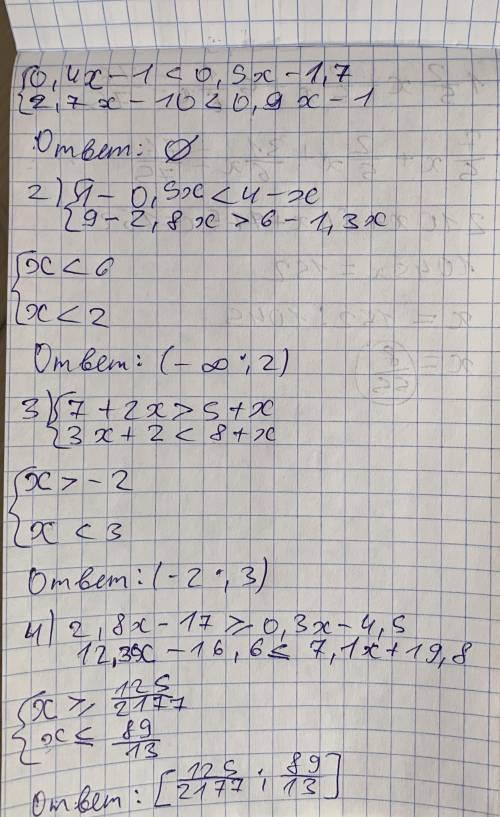 {0,4x-1<0,5x-1,7
{2,7x-10<0,9x-1
Ответ: ∅
2) {1-0,5x<4-x
{9-2,8x>6-1,3x
{x<6
{x<2
Ответ: (-∞;2)
3) {7+2x>5+x
{3x+2<8+x
{x>-2
{x<3
Ответ: (-2;3)
4) 2,8x-17≥-0,3x-4,5
12,35x-16,6≤7,1x+19,8
{x≥125/2177
{x≤89/13
Ответ: [125/2177;89/13]